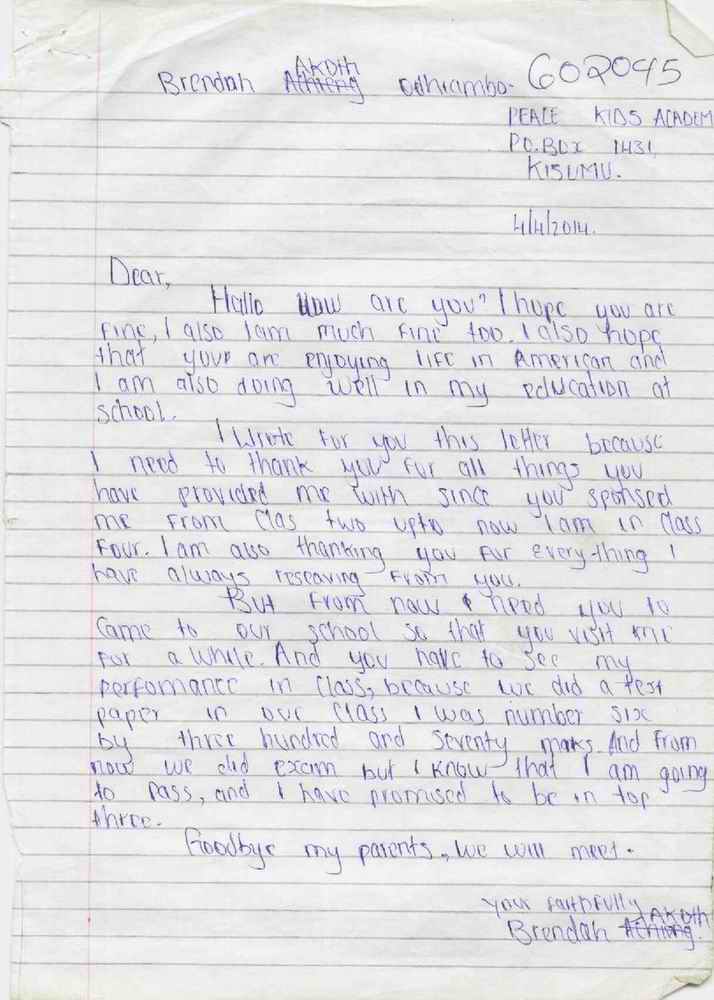 AKOTH
Brendah Achieng Odhiambo. 602045
PEACE KIDS ACADEM
P.O.BOX 1431,
KISUMU.
4/4/2014.
Dear,
Hallo how are you? I hope you are
fine, I also I am much fine too. I also hope
that your are enjoying life in American and
I am also doing well in my education at
school.
I Wrote for you this letter because
I need to thank you for all things you
have provided me with since you sponsed
me from Clas two upto now I am in Class
Four. I am also thanking you for every-thing I
have always resceaving from you.
But from now I need you to
came to our school so that you visit me
for a while. And you have to see my
perfomance in class, because we did a test
paper in our class I was number six
by three hundred and seventy marks. And from
now we did excam but I know that I am going
to pass, and I have promised to be in top
three.
Goodbye my parents, we will meet.
Your faithfully
AKOTH
Brendah Achieng.